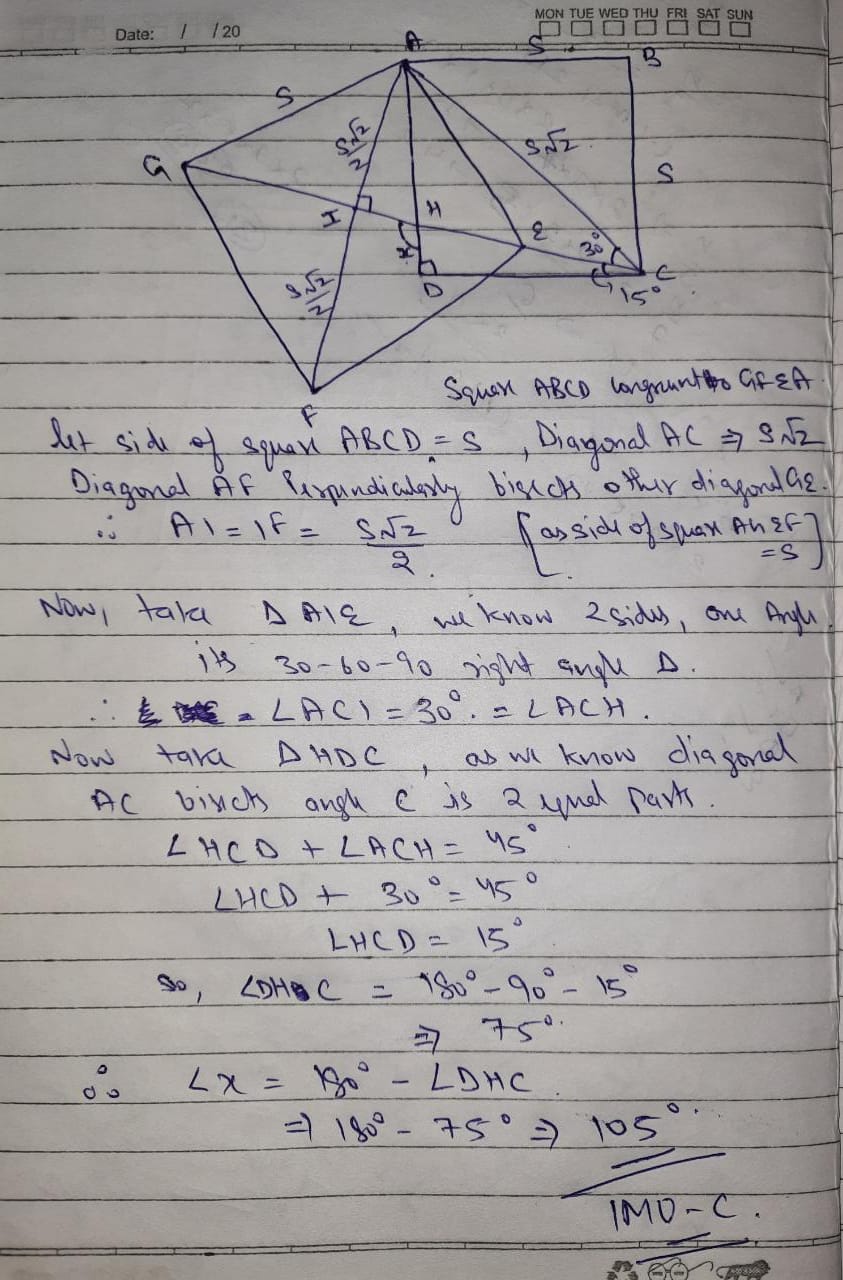 MON TUE WED THU FRI SAT SUN
Date: / /20
A
S
B
S
S√2/2
S√2
S
G
I
H
E
30°
x
C
D
15°
S√2/2
F
Square ABCD congruent to GFEA
let side of square ABCD = S , Diagonal AC ⇒ S√2
Diagonal AF Perpendicularly bisects other diagonal GE.
∴ AI = IF = S√2/2 [as side of square AGEF = S]
Now, take Δ AIE , we know 2 sides, one Angle.
its 30-60-90 right angle Δ.
∴ = ∠ACI = 30°. = ∠ACH.
Now take Δ HDC , as we know diagonal
AC bisects angle C is 2 equal parts.
∠HCD + ∠ACH = 45°
∠HCD + 30° = 45°
∠HCD = 15°
So, ∠DHC = 180° - 90° - 15°
⇒ 75°.
∴ ∠x = 180° - ∠DHC
⇒ 180° - 75° ⇒ 105°.
IMO - C.